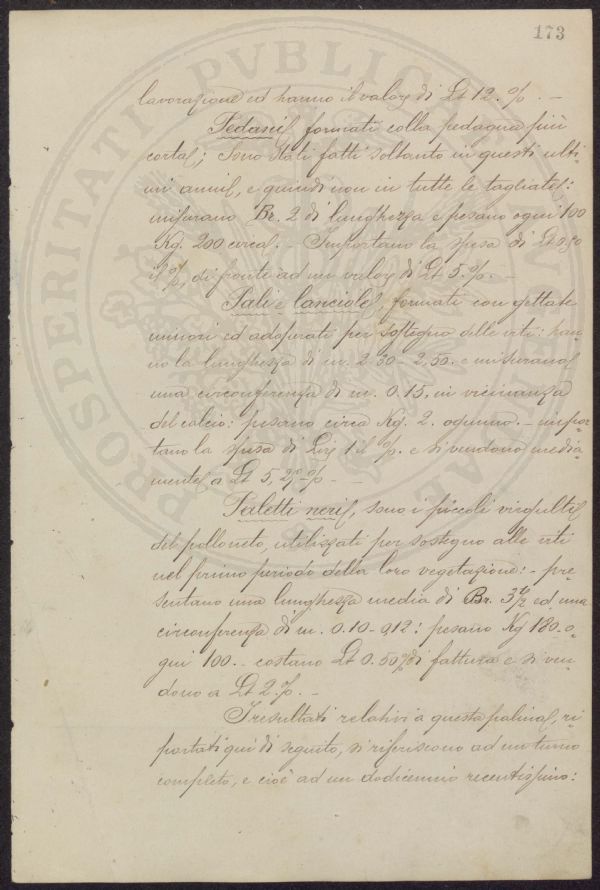 173
lavorazione ed hanno il valore di Lt 12. % . —
Pedani, formati colla pedagna più
corta; sono stati fatti soltanto in questi ulti-
mi anni, e quindi non in tutte le tagliate:
misurano Br. 2 di lunghezza e pesano ogni 100
Kg. 200 circa. — Importano la spesa di Lt 0.50
il %, di fronte ad un valore di Lt 5. %. —
Pali e lanciole, formati con gettate
minori ed adoprati per sostegno delle viti: han-
no la lunghezza di m. 2.30 - 2,50. e misurano
una circonferenza di m. 0.15, in vicinanza
del calcio: pesano circa Kg. 2. ognuno. — impor-
tano la spesa di Lire 1 il %. e si vendono media-
mente a Lt 5, %
Paletti neri, sono i piccoli virgulti
del polloneto, utilizzati per sostegno alle viti
nel primo periodo della loro vegetazione: — pre-
sentano una lunghezza media di Br. 3 ½ ed una
circonferenza di m. 0.10 - 0.12: pesano Kg 180. o-
gni 100. — costano Lt 0.50 % di fattura e si ven-
dono a Lt 2. %. —
I resultati relativi a questa palina, ri-
portati qui di seguito, si riferiscono ad un turno
completo, e cioè ad un dodicennio recentissimo:
PROSPERITATI PVBLICAE